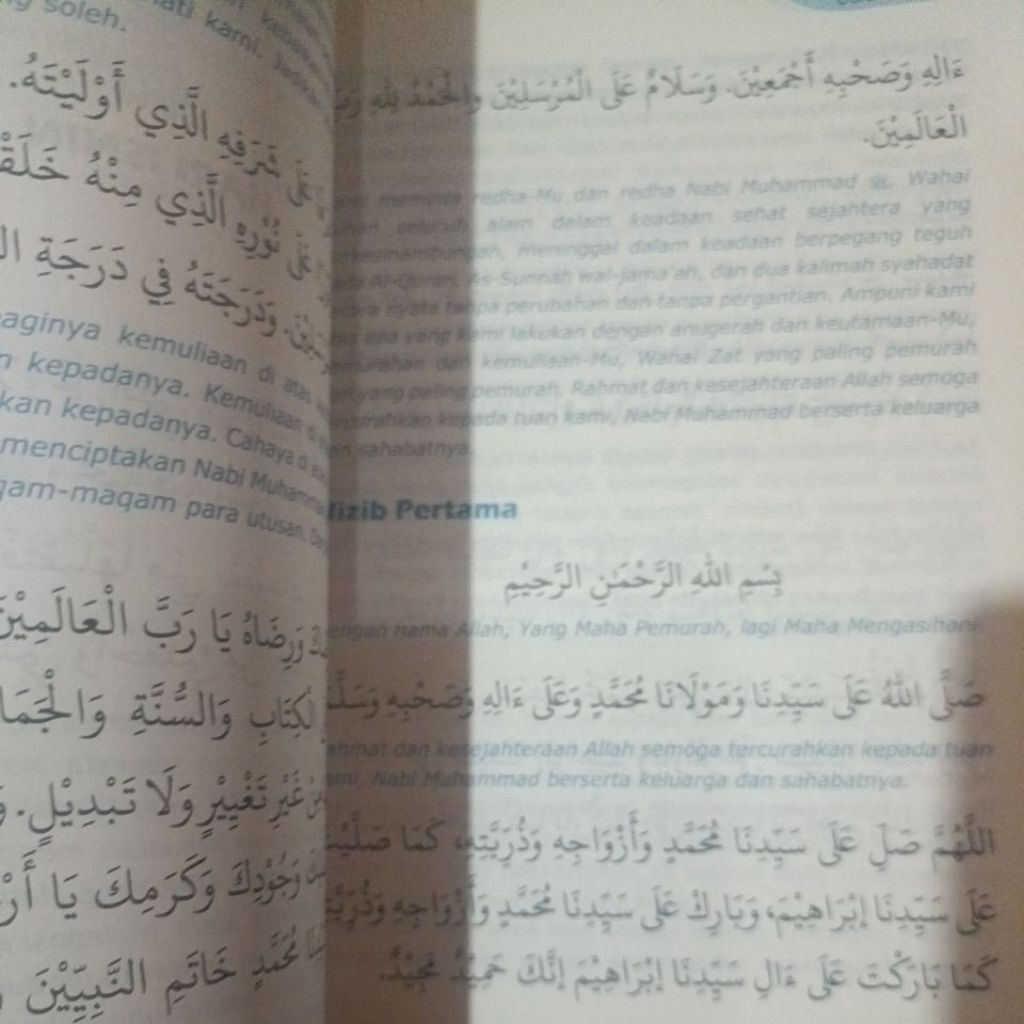 g soleh.
ati kami.
شَرَفِهِ الَّذِي أَوْلَيْتَهُ.
عَلَى نُوْرِهِ الَّذِي مِنْهُ
وَدَرَجَتَهُ فِي دَرَجَةِ
aginya kemuliaan di atas
kepadanya. Kemuliaan
kan kepadanya. Cahaya di
menciptakan Nabi Muhamm
qam-maqam para utusan.
وَرِضَاهُ يَا رَبَّ الْعَالَمِيْنَ
لْكِتَابِ وَالسُّنَّةِ وَالْجَمَا
غَيْرِ تَغْيِيْرٍ وَلَا تَبْدِيْلٍ.
وَجُوْدِكَ وَكَرَمِكَ يَا
مُحَمَّدٍ خَاتَمِ النَّبِيِّيْنَ
ءَالِهِ وَصَحْبِهِ أَجْمَعِيْنَ، وَسَلَامٌ عَلَى الْمُرْسَلِيْنَ وَالْحَمْدُ لِلّٰهِ
الْعَالَمِيْنَ.
meminta redha-Mu dan redha Nabi Muhammad ﷺ. Wahai
seluruh alam dalam keadaan sehat sejahtera yang
meninggal dalam keadaan berpegang teguh
Al-Quran, As-Sunnah wal-jama'ah, dan dua kalimah syahadat
nyata tanpa perubahan dan tanpa pergantian. Ampuni kami
apa yang kami lakukan dengan anugerah dan keutamaan-Mu,
dan kemuliaan-Mu, Wahai Zat yang paling pemurah
yang paling pemurah. Rahmat dan kesejahteraan Allah semoga
kepada tuan kami, Nabi Muhammad berserta keluarga
sahabatnya.
Hizib Pertama
بِسْمِ اللهِ الرَّحْمٰنِ الرَّحِيْمِ
engan nama Allah, Yang Maha Pemurah, lagi Maha Mengasihani
صَلَّى اللهُ عَلَى سَيِّدِنَا وَمَوْلَانَا مُحَمَّدٍ وَعَلَى ءَالِهِ وَصَحْبِهِ وَسَلَّ
ahmat dan kesejahteraan Allah semoga tercurahkan kepada tuan
ami, Nabi Muhammad berserta keluarga dan sahabatnya.
اللّٰهُمَّ صَلِّ عَلَى سَيِّدِنَا مُحَمَّدٍ وَأَزْوَاجِهِ وَذُرِّيَّتِهِ، كَمَا صَلَّيْتَ
عَلَى سَيِّدِنَا إِبْرَاهِيْمَ، وَبَارِكْ عَلَى سَيِّدِنَا مُحَمَّدٍ وَأَزْوَاجِهِ وَذُرِّيَّ
كَمَا بَارَكْتَ عَلَى ءَالِ سَيِّدِنَا إِبْرَاهِيْمَ إِنَّكَ حَمِيْدٌ مَجِيْدٌ.